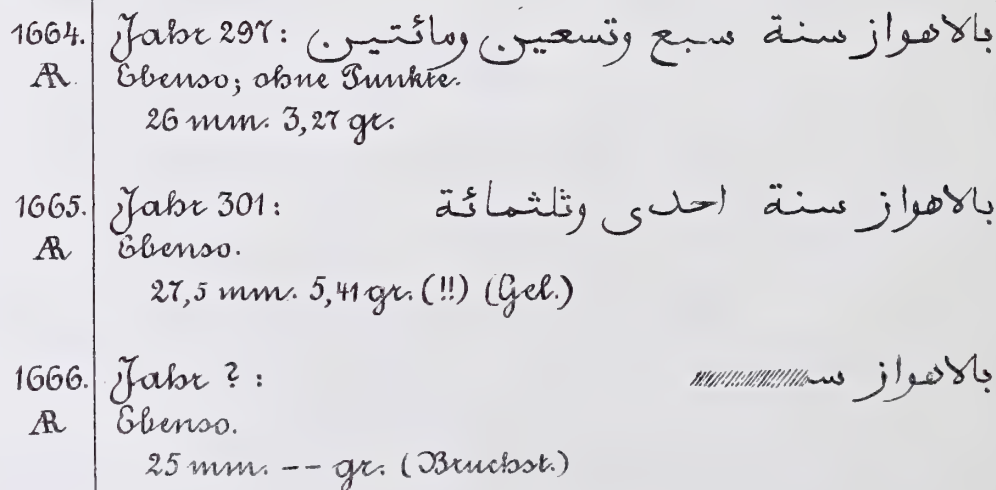 1664. Jahr 297: بالاهواز سنة سبع وتسعين ومائتين
AR Ebenso; ohne Punkte.
26 mm. 3,27 gr.
1665. Jahr 301: بالاهواز سنة احدى وثلثمائة
AR Ebenso.
27,5 mm. 5,41 gr. (!!) (Gel.)
1666. Jahr ? : بالاهواز سـ
AR Ebenso.
25 mm. -- gr. (Bruchst.)